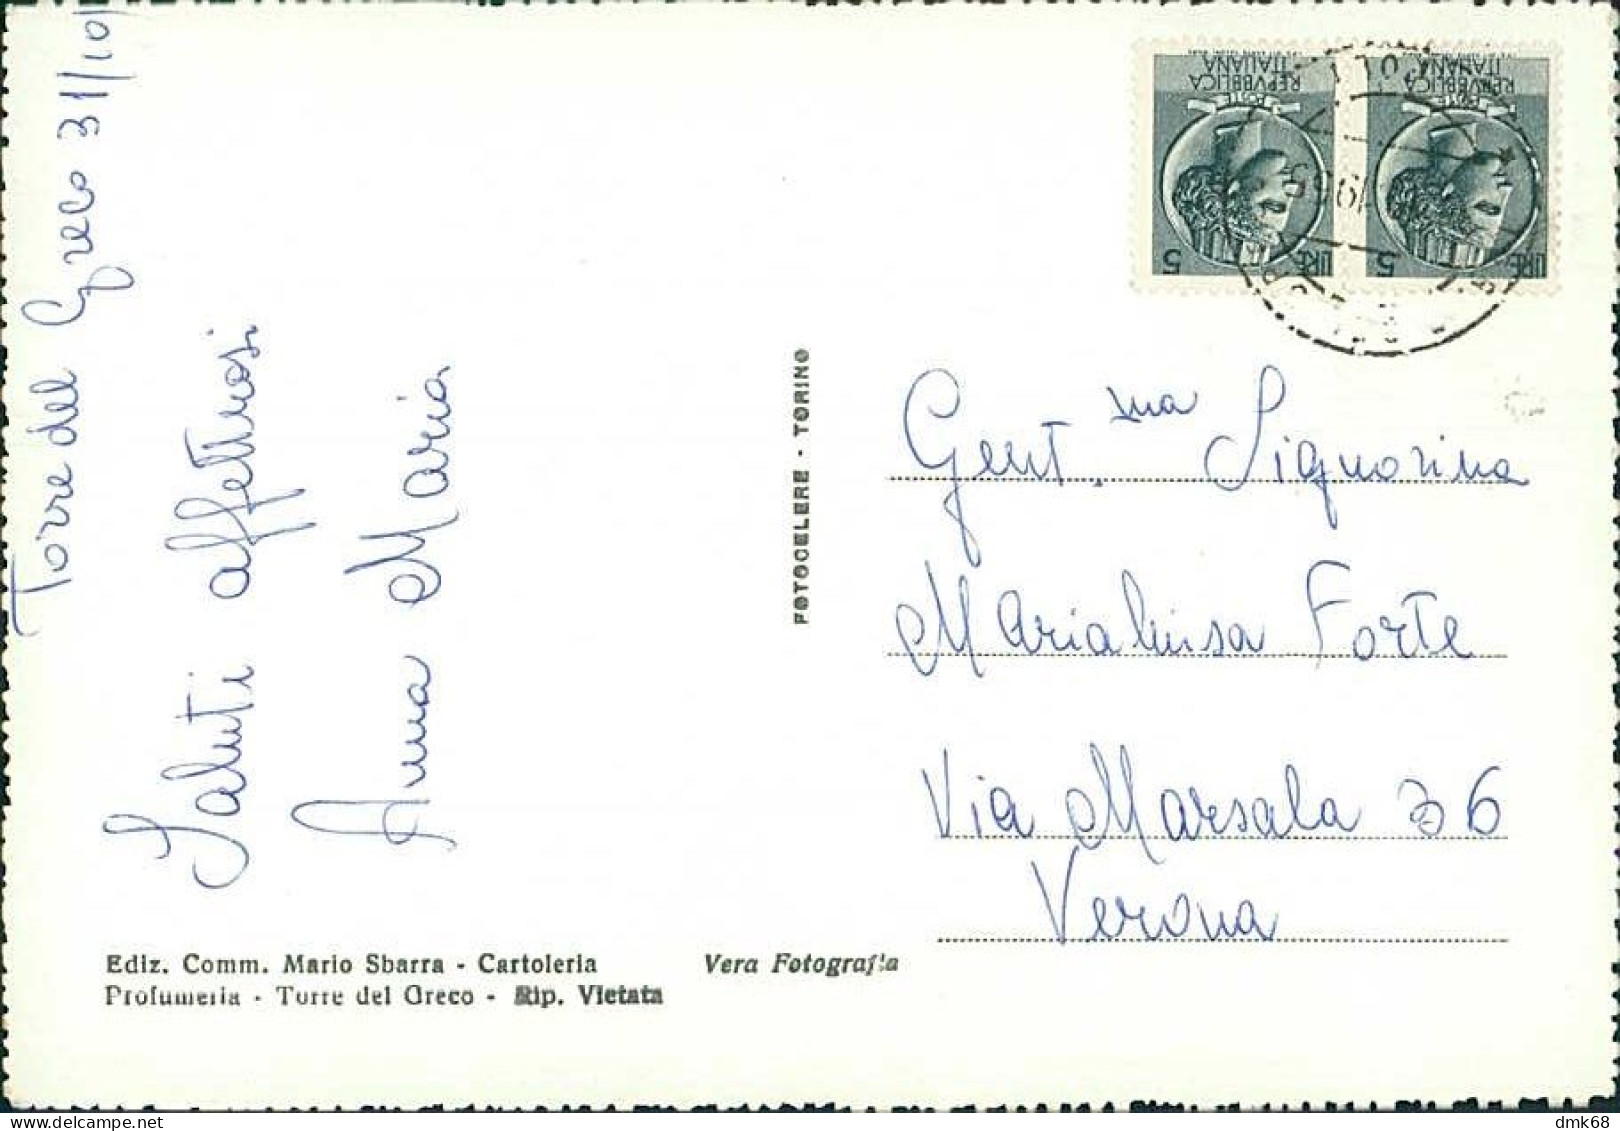 Torre del Greco 31/10
Saluti affettuosi
Anna Maria
FOTOCELERE - TORINO
REPVBBLICA
ITALIANA
POSTE
LIRE 5
REPVBBLICA
ITALIANA
POSTE
LIRE 5
Gent.ma Signorina
Marialuisa Forte
Via Marsala 36
Verona
Ediz. Comm. Mario Sbarra - Cartoleria
Profumeria - Torre del Greco - Rip. Vietata
Vera Fotografia
dmk68